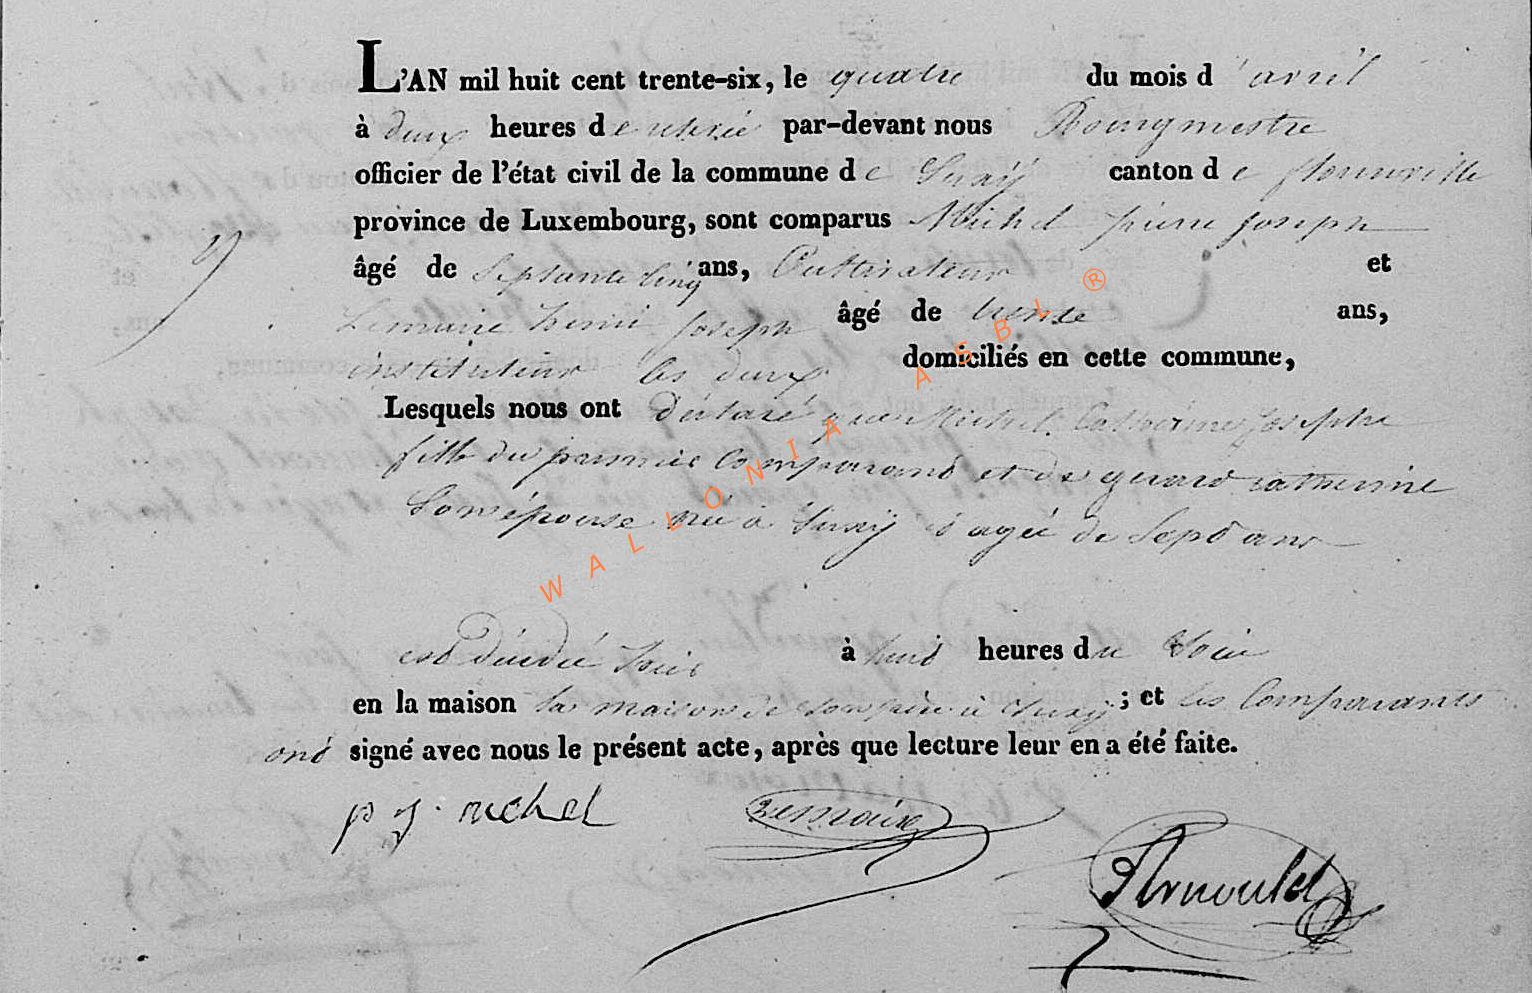 L'AN mil huit cent trente-six, le quatre du mois d'avril
à deux heures de relevée par-devant nous Bourgmestre
officier de l'état civil de la commune de Suxÿ canton de florenville
province de Luxembourg, sont comparus Michel pierre joseph
âgé de Septante Cinq ans, Cultivateur et
Lemaire henri joseph âgé de trente ans,
instituteur les deux domiciliés en cette commune,
Lesquels nous ont déclaré que Michel Catherine josephe
fille du premier Comparant et de gerard catherine
Son épouse née à Suxÿ et agée de Sept ans
est décédée hier à huit heures du Soir
en la maison la maison de son père à Suxÿ ; et les Comparants
ont signé avec nous le présent acte, après que lecture leur en a été faite.
p j. michel Lemaire
Arnould
WALLONIA ASBL ®